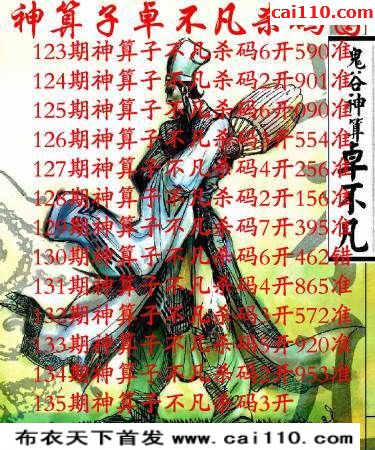 cai110.com
神算子卓不凡杀码图
鬼谷神算
卓不凡
123期神算子不凡杀码6开590准
124期神算子不凡杀码2开901准
125期神算子不凡杀码6开090准
126期神算子不凡杀码6开554准
127期神算子不凡杀码4开256准
128期神算子不凡杀码2开156准
129期神算子不凡杀码7开395准
130期神算子不凡杀码6开462错
131期神算子不凡杀码4开865准
132期神算子不凡杀码3开572准
133期神算子不凡杀码5开920准
134期神算子不凡杀码2开953准
135期神算子不凡杀码3开
布衣天下首发 www.cai110.com